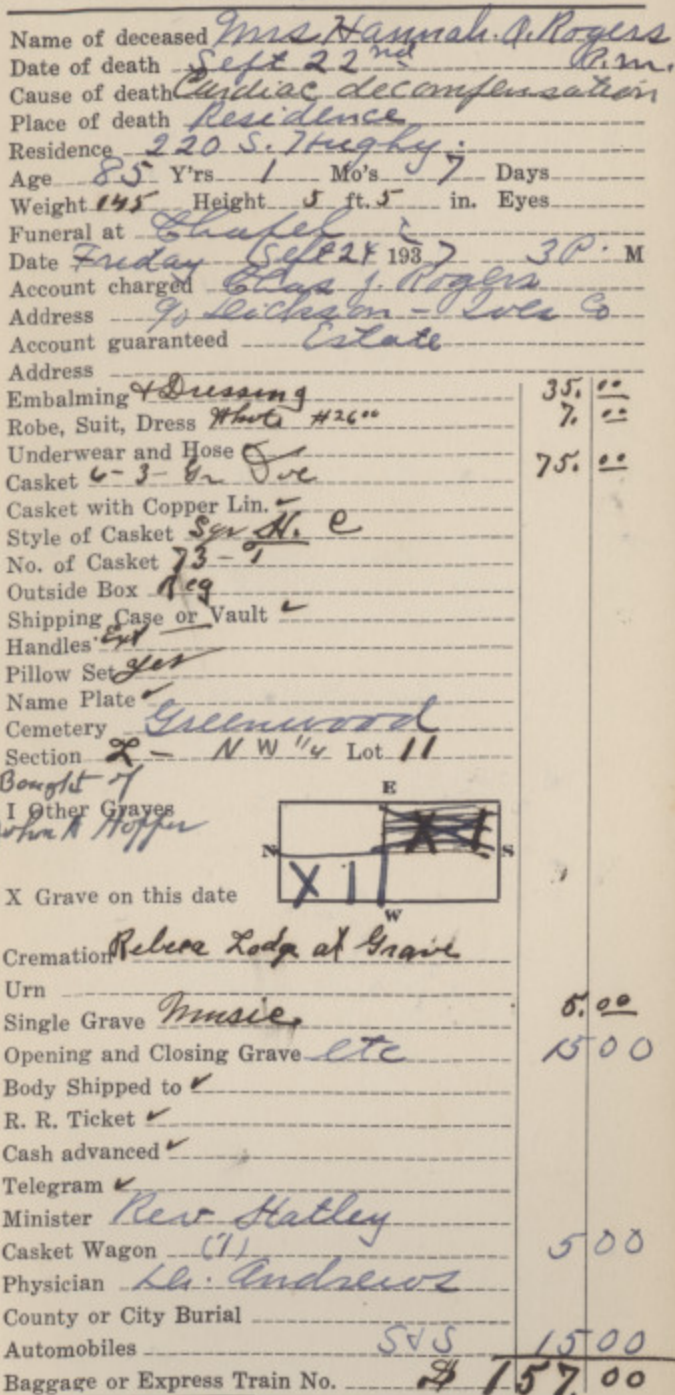 Name of deceased Mrs Hannah. A. Rogers
Date of death Sept 22nd P.m.
Cause of death Cardiac decompensation
Place of death Residence
Residence 220 S. Hughy.
Age 85 Y'rs 1 Mo's 7 Days
Weight 145 Height 5 ft. 5 in. Eyes
Funeral at Chapel
Date Friday Sept 24 1937 3 P. M
Account charged Chas J. Rogers
Address % Dickson - Ives Co
Account guaranteed Estate
Address
Embalming & Dressing 35.00
Robe, Suit, Dress #2600 7.00
Underwear and Hose
Casket 6-3- 75.00
Casket with Copper Lin. ✓
Style of Casket Sqr H. C
No. of Casket 73-
Outside Box Reg
Shipping Case or Vault ✓
Handles Ext
Pillow Set yes
Name Plate ✓
Cemetery Greenwood
Section Z - N W 1/4 Lot 11
Bought of
I Other Graves
John A Hoffer
E
X I
N S
X I I
X Grave on this date
W
Cremation Rebeca Lodge at Grave
Urn
Single Grave Music 5.00
Opening and Closing Grave etc 15 00
Body Shipped to ✓
R. R. Ticket ✓
Cash advanced ✓
Telegram ✓
Minister Rev Hatley
Casket Wagon (1) 5 00
Physician Dr. Andrews
County or City Burial
Automobiles S & S 15 00
Baggage or Express Train No. $ 157 00